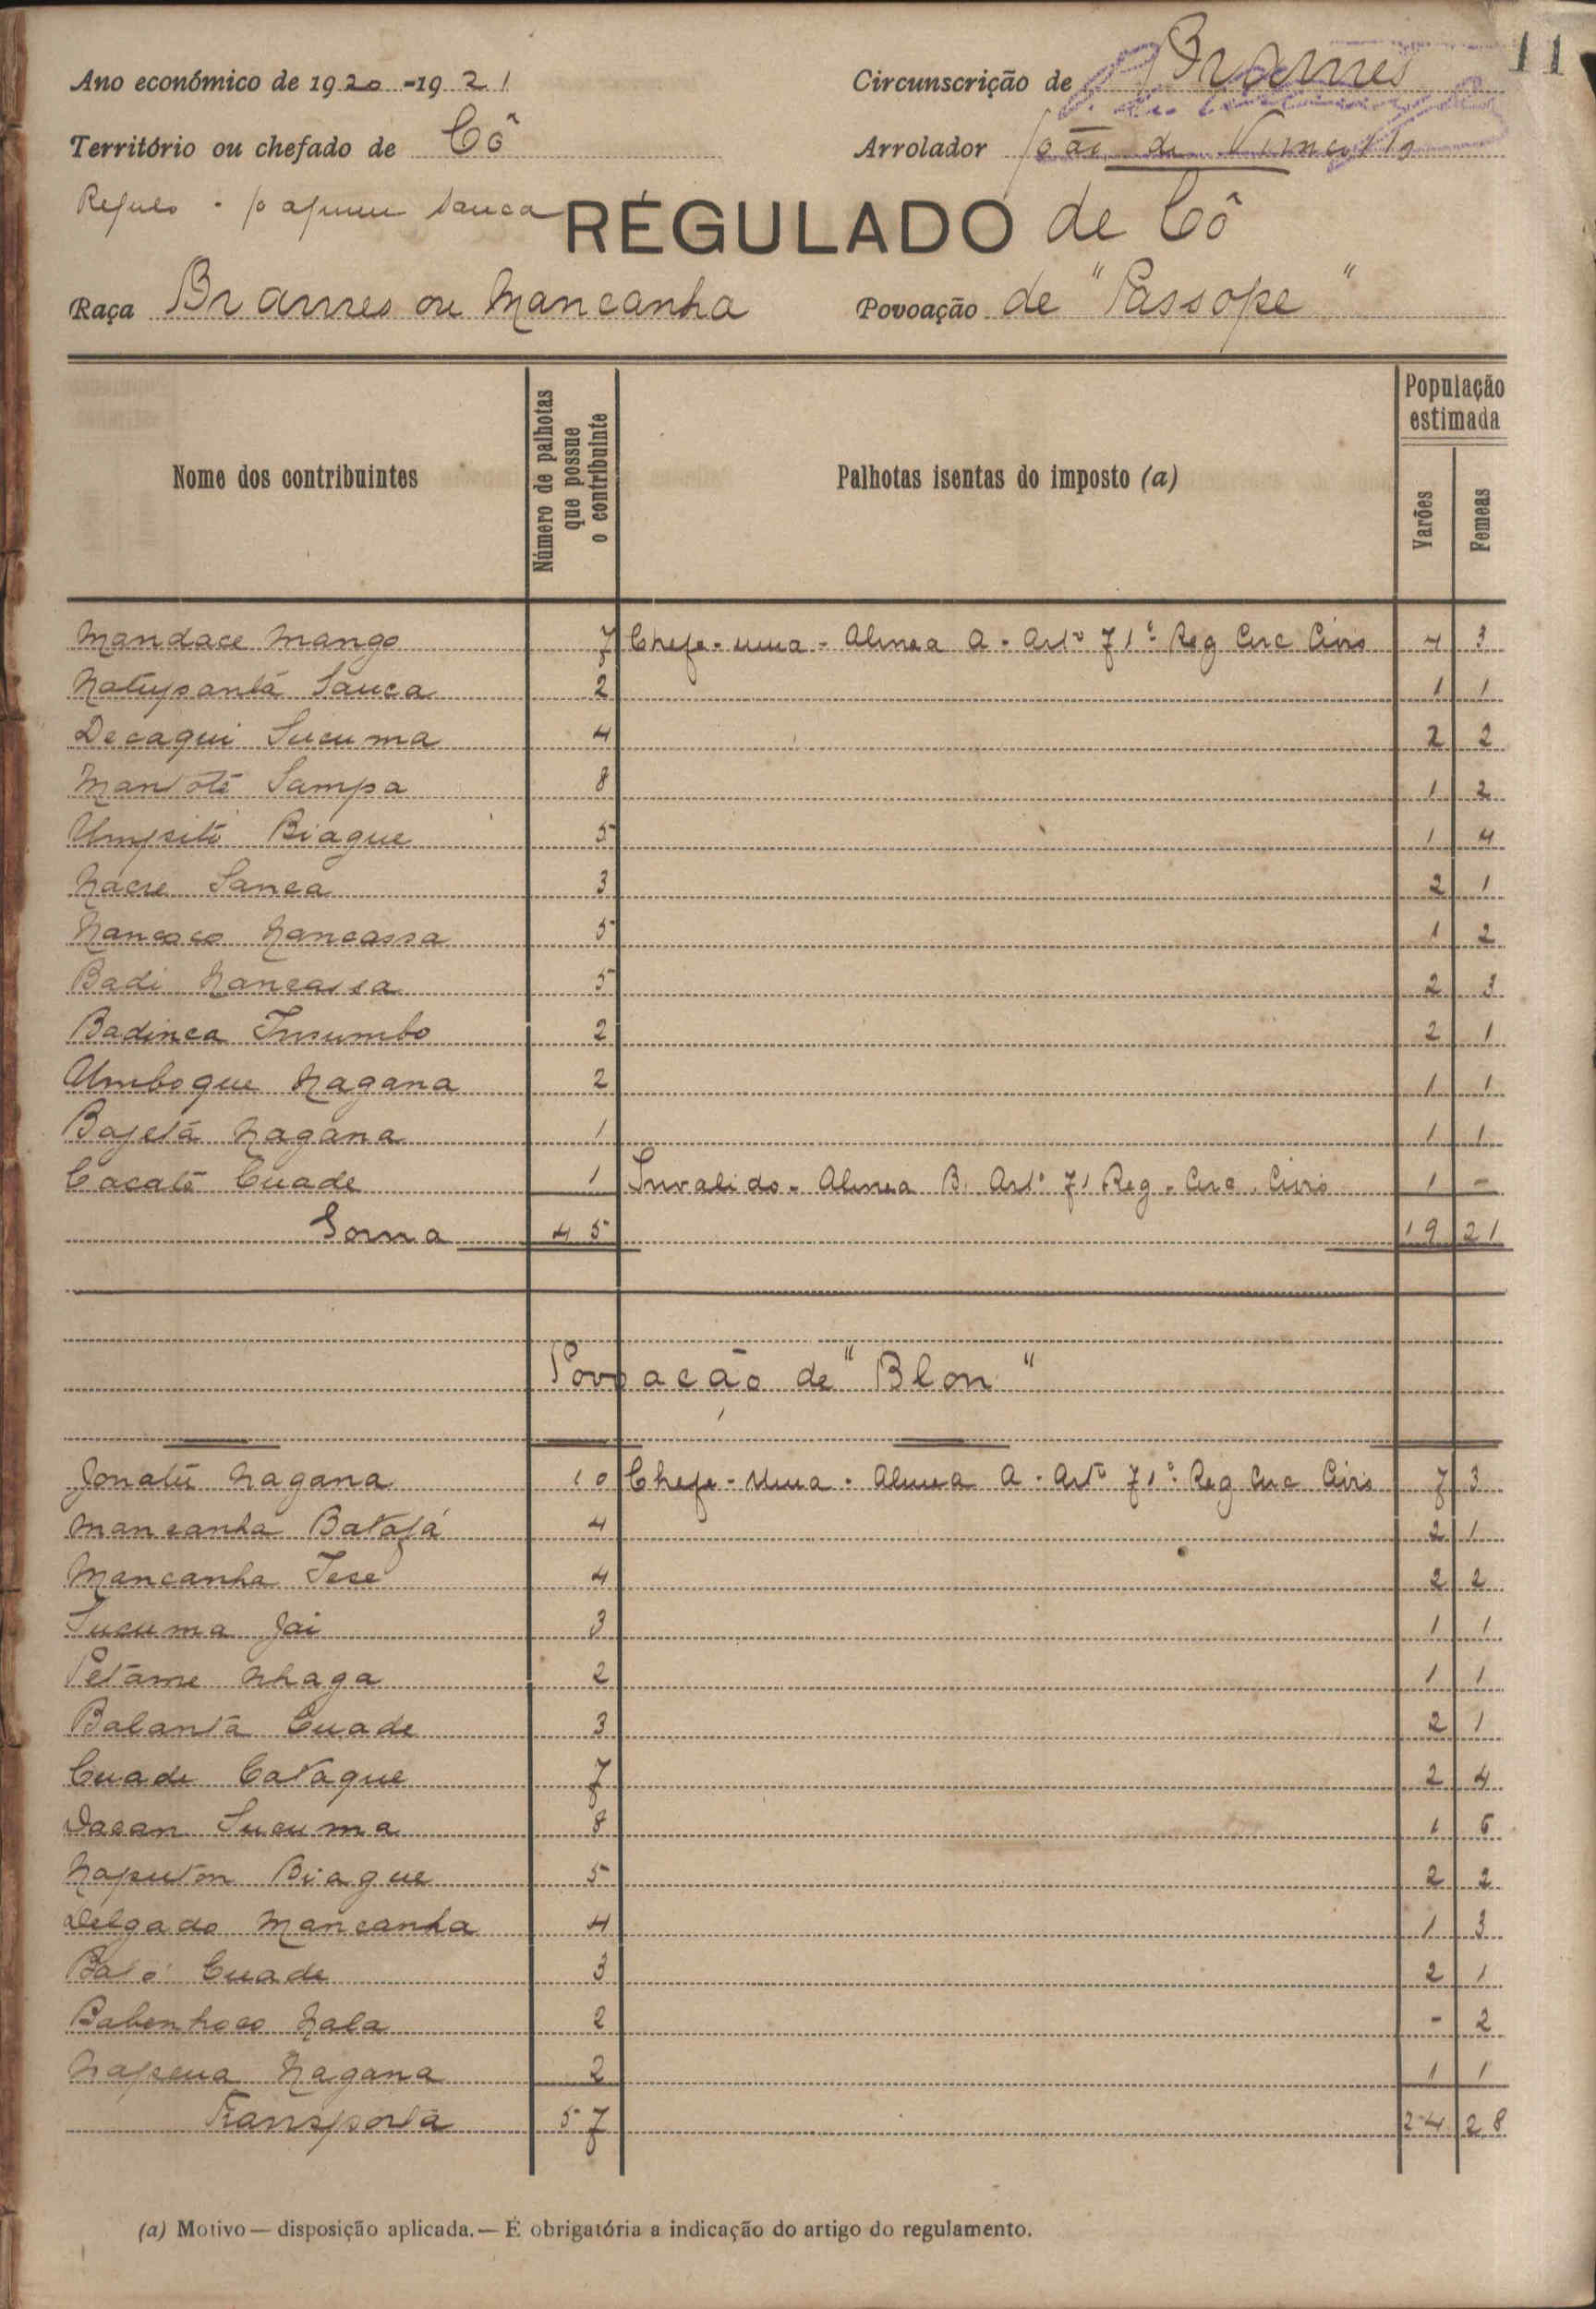 11
Ano económico de 1920-1921 Circunscrição de Brames
Território ou chefado de Cô Arrolador João de
Regulo - Sanca
REGULADO de Cô
Raça Brames ou Mancanha Povoação de "Passope"
Nome dos contribuintes Número de palhotas que possue o contribuinte Palhotas isentas do imposto (a) População estimada Varões Femeas
Mandace Mango 7 Chefe - uma - Alinea A - Artº 71º Reg Circ Civis 4 3
Sanca 2 1 1
Decaqui Sucuma 4 2 2
Mantóte Sampa 8 1 2
Umpsitó Biague 5 1 4
Nacre Sanca 3 2 1
Nancoco Nancassa 5 1 2
Badi Nancassa 5 2 3
Badinca Insumbo 2 2 1
Umboque Nagana 2 1 1
Nagana 1 1 1
Cacató Cuade 1 Invalido - Alinea B. Artº 71 Reg - Circ. Civis 1 -
Soma 45 19 21
Povoacão de "Blon"
Jonatú Nagana 10 Chefe - Uma - Alinea A - Artº 71º Reg Circ Civis 7 3
Mancanha Batajá 4 2 1
Mancanha Tese 4 2 2
Sucuma Jai 3 1 1
Petame Nhaga 2 1 1
Balanta Cuade 3 2 1
Cuade Cataque 7 2 4
Dacan Sucuma 8 1 6
Naputon Biague 5 2 2
Delgado Mancanha 4 1 3
Cuade 3 2 1
Babenhoco Nala 2 - 2
Nagana 2 1 1
Transporta 57 24 28
(a) Motivo — disposição aplicada. — É obrigatória a indicação do artigo do regulamento.